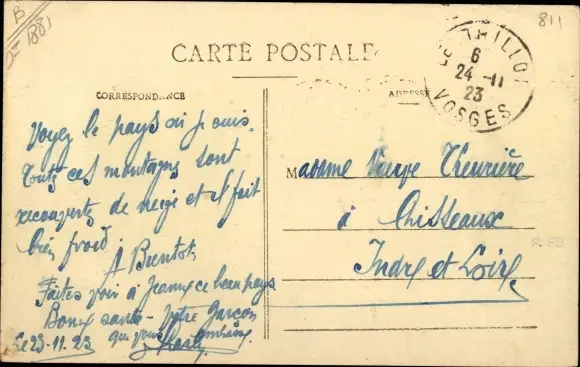 B
1881
811
CARTE POSTALE
CORRESPONDANCE
ADRESSE
THILLOT
6
24 -11
23
VOSGES
Voyez le pays où j suis.
Toutes ces montagnes sont
recouvertes de neige et il fait
bien froid.
A Bientot,
Faites voir à Jeanne ce beau pays
Bonne santé - Votre Garçon
qui vous embrasse
Le 23-11. 23
Madame Veuve
à Chisseaux
Indre et Loire